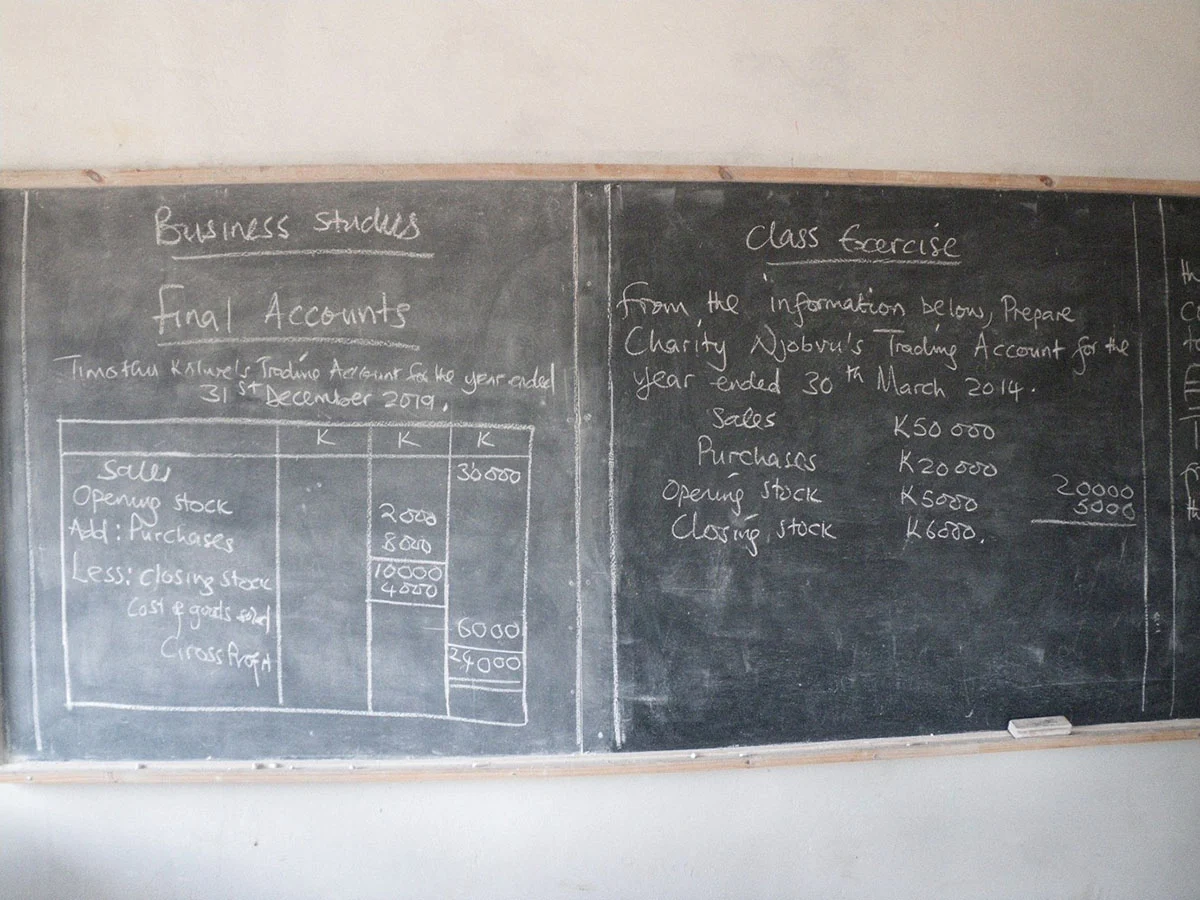 Business Studies
Final Accounts
Timothy Trading Account for the year ended
31st December 2019.
K K K
Sales 30000
Opening stock 2000
Add: Purchases 8000
10000
Less: Closing stock 4000
Cost of goods sold 6000
Gross Profit 24000
Class Exercise
From the information below, Prepare
Charity Njobvu's Trading Account for the
year ended 30th March 2014.
Sales K50 000
Purchases K20000
Opening stock K5000
Closing stock K6000.
20000
5000